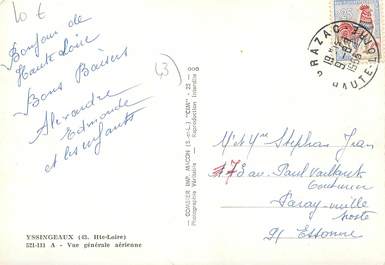 10 €
Bonjour de
Haute Loire
Bons Baisers
Alexandre
Edmonde
et les enfants
43
YSSINGEAUX (43. Hte-Loire)
521-111 A - Vue générale aérienne
COMBIER IMP. MACON (S.-et-L.) "CIM"
Photographie Véritable - Reproduction Interdite
GRAZAC
HAUTE-LOIRE
Mr et Mme Stephan Jean
17 Bd Paul Vaillant
Couturier
Paray-vieille
poste
91 Essonne